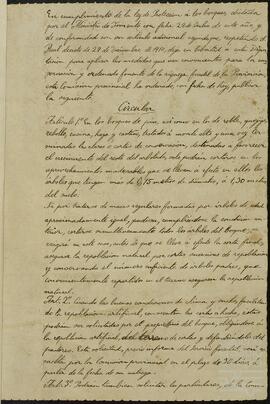 En cumplimiento de la ley de Protección a los bosques, dictada
por el Ministerio de Fomento con fecha 24 de Julio de este año, y
de conformidad con su artículo adicional segundo, respetando el
Real decreto de 24 de Diciembre de 1910, deja en libertad a esta Dipu-
tación para aplicar las medidas que crea convenientes para la con-
servación y ordenado fomento de la riqueza forestal de la Provincia,
esta Comisión provincial ha ordenado, con fecha de hoy, publicar
la siguiente
Circular
Artículo 1º En los bosques de pino, así como en los de roble, quejigo,
rebollo, encina, haya y castaño, tratados a monte alto y una vez ter-
minadas las claras o cortas de conservación, destinadas a favorecer
el crecimiento del resto del arbolado, sólo podrán cortarse en los
aprovechamientos maderables que se lleven a efecto en ellos los
árboles que tengan más de 0,15 metros de diámetro, a 1,30 metros
del suelo.
Si se tratase de masas regulares formadas por árboles de edad
aproximadamente igual, podrán, cumpliéndose la condición an-
terior, cortarse simultáneamente todos los árboles del bosque,
exigirá en este caso, antes de que se lleve a efecto la corta final,
asegurar la repoblación natural por cortas sucesivas de repoblación
y conservando el número suficiente de árboles padres, que
convenientemente repartidos en el terreno aseguren la repoblación
natural.
Art. 2º Cuando las buenas condiciones de clima y suelo, faciliten
la repoblación artificial, en montes las cortas a hecho, estas
podrán ser solicitadas por el propietario del bosque, obligándose a
la repoblación artificial, del terreno de cortas y defendiéndolos del
pastoreo. Esta solicitud, previo informe del Servicio forestal, será re-
suelta por la Comisión provincial en el plazo de 30 días a
partir de la fecha de su entrega.
Art. 3º Podrán también solicitar los particulares, de la Comi-